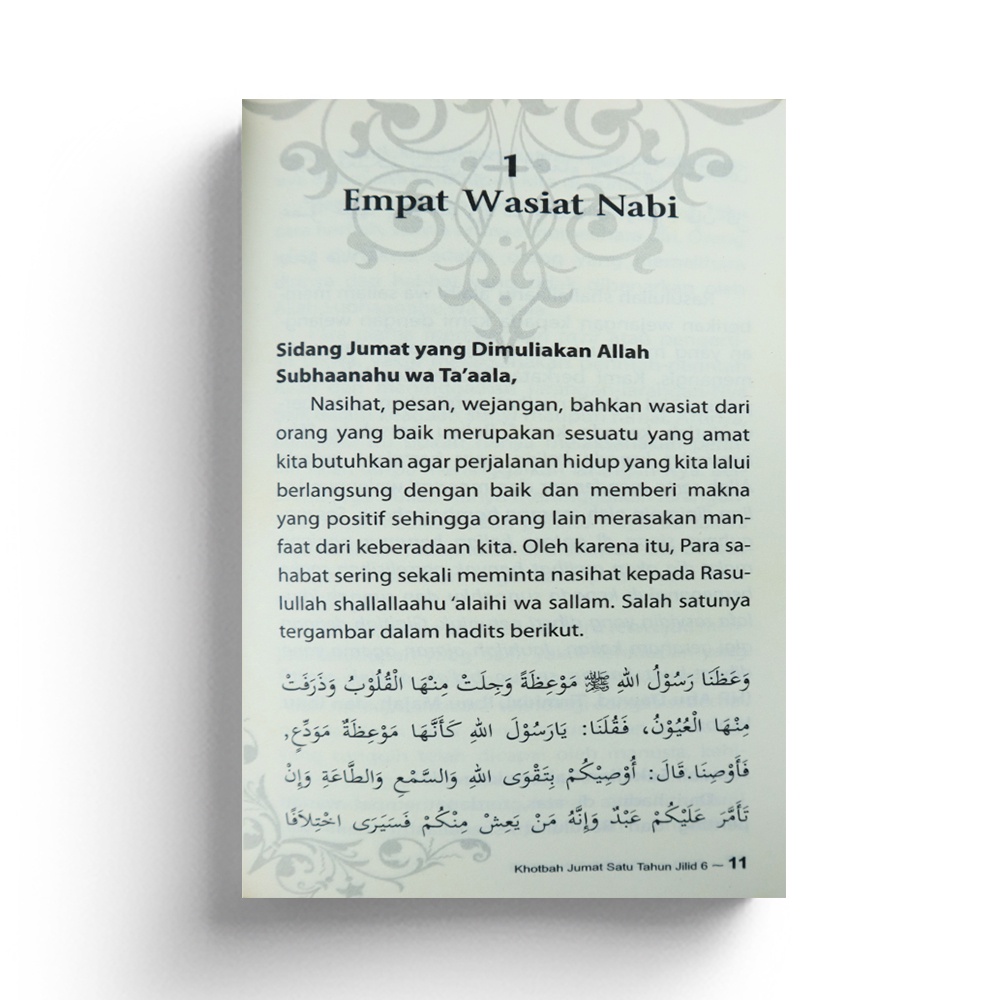 1
Empat Wasiat Nabi
Sidang Jumat yang Dimuliakan Allah
Subhaanahu wa Ta’aala,
Nasihat, pesan, wejangan, bahkan wasiat dari
orang yang baik merupakan sesuatu yang amat
kita butuhkan agar perjalanan hidup yang kita lalui
berlangsung dengan baik dan memberi makna
yang positif sehingga orang lain merasakan man-
faat dari keberadaan kita. Oleh karena itu, Para sa-
habat sering sekali meminta nasihat kepada Rasu-
lullah shallallaahu ‘alaihi wa sallam. Salah satunya
tergambar dalam hadits berikut.
وَعَظَنَا رَسُوْلُ اللهِ ﷺ مَوْعِظَةً وَجِلَتْ مِنْهَا الْقُلُوْبُ وَذَرَفَتْ
مِنْهَا الْعُيُوْنُ، فَقُلْنَا: يَارَسُوْلَ اللهِ كَأَنَّهَا مَوْعِظَةٌ مَوَدِّعٍ,
فَأَوْصِنَا.قَالَ: أُوْصِيْكُمْ بِتَقْوَى اللهِ وَالسَّمْعِ وَالطَّاعَةِ وَإِنْ
تَأَمَّرَ عَلَيْكُمْ عَبْدٌ وَإِنَّهُ مَنْ يَعِشْ مِنْكُمْ فَسَيَرَى اخْتِلَافًا
Khotbah Jumat Satu Tahun Jilid 6 — 11